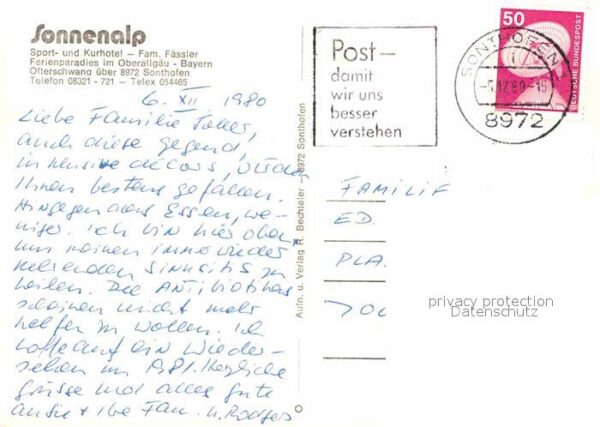 Sonnenalp
Sport- und Kurhotel – Fam. Fässler
Ferienparadies im Oberallgäu - Bayern
Ofterschwang über 8972 Sonthofen
Telefon 08321 - 721 – Telex 054465
6. XII 1980
Liebe Familie
auch diese Gegend,
inklusive décors, würden
Ihnen bestens gefallen.
Hingegen das Essen, we-
niger. Ich bin hier oben,
um meinen immer wieder
kehrenden Sinusitis zu
heilen. Die Antibiotikas
scheinen nicht mehr
helfen zu wollen. Ich
hoffe auf ein Wieder-
sehen im Herzliche
Grüsse und alles gute
an Sie + Ihre Fam.
Aufn. u. Verlag R. Bechteler - 8972 Sonthofen
Post –
damit
wir uns
besser
verstehen
SONTHOFEN 1
12.80-15
8972
50
DEUTSCHE BUNDESPOST
FAMILIE
ED.
PLA.
privacy protection
Datenschutz